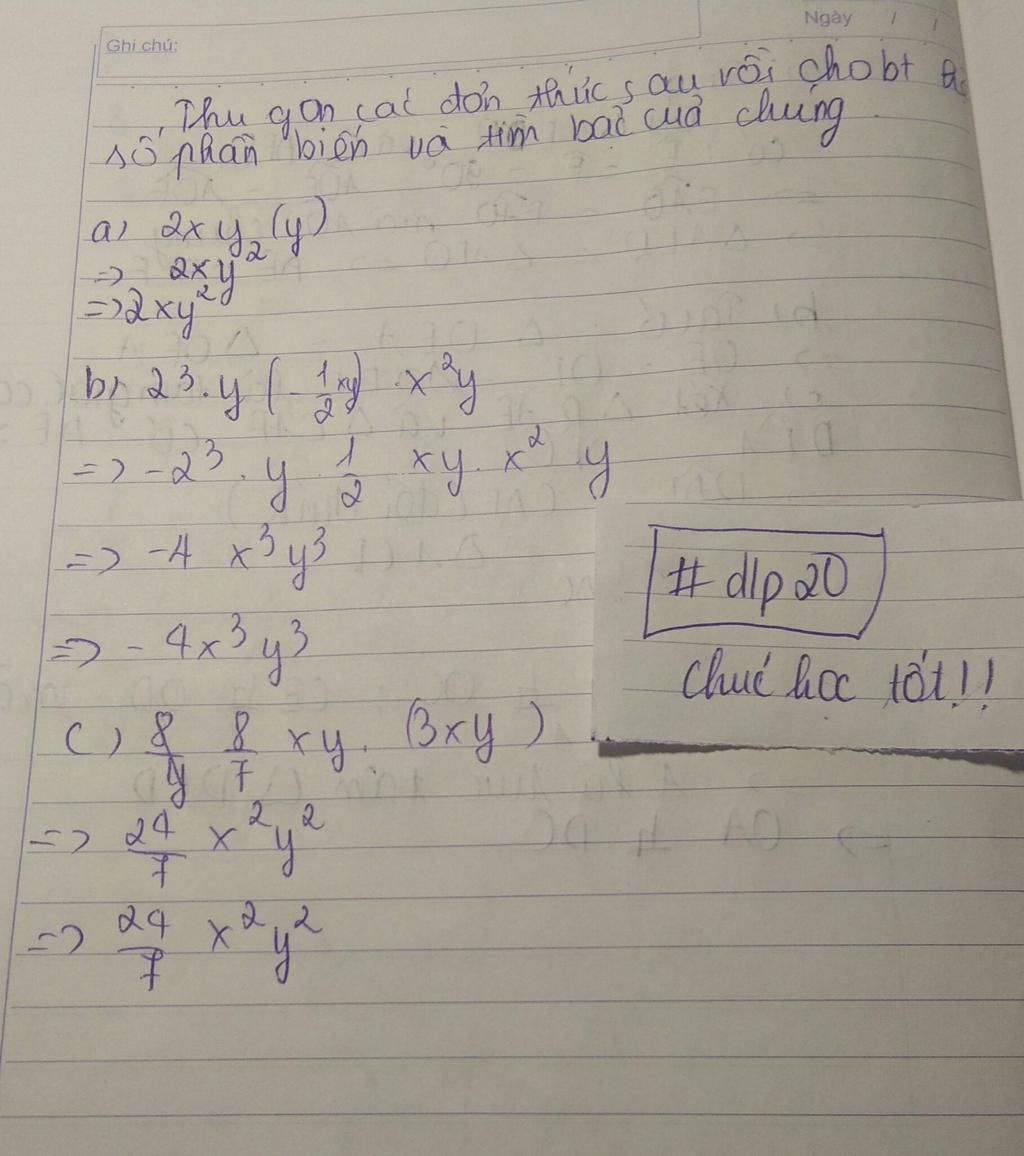 Ngày / /
Ghi chú:
Thu gọn các đơn thức sau rồi cho bt
số phần biến và tìm bậc của chúng
a) 2xy (y)
=> 2xy²
=> 2xy²
b) 2³.y (-1/2 xy) . x²y
=> -2³ . y . 1/2 xy . x² y
=> -4 x³y³
=> -4x³y³
# dlp20
chúc học tốt!!
c) 8/y 8/7 xy. (3xy)
=> 24/7 x²y²
=> 24/7 x²y²